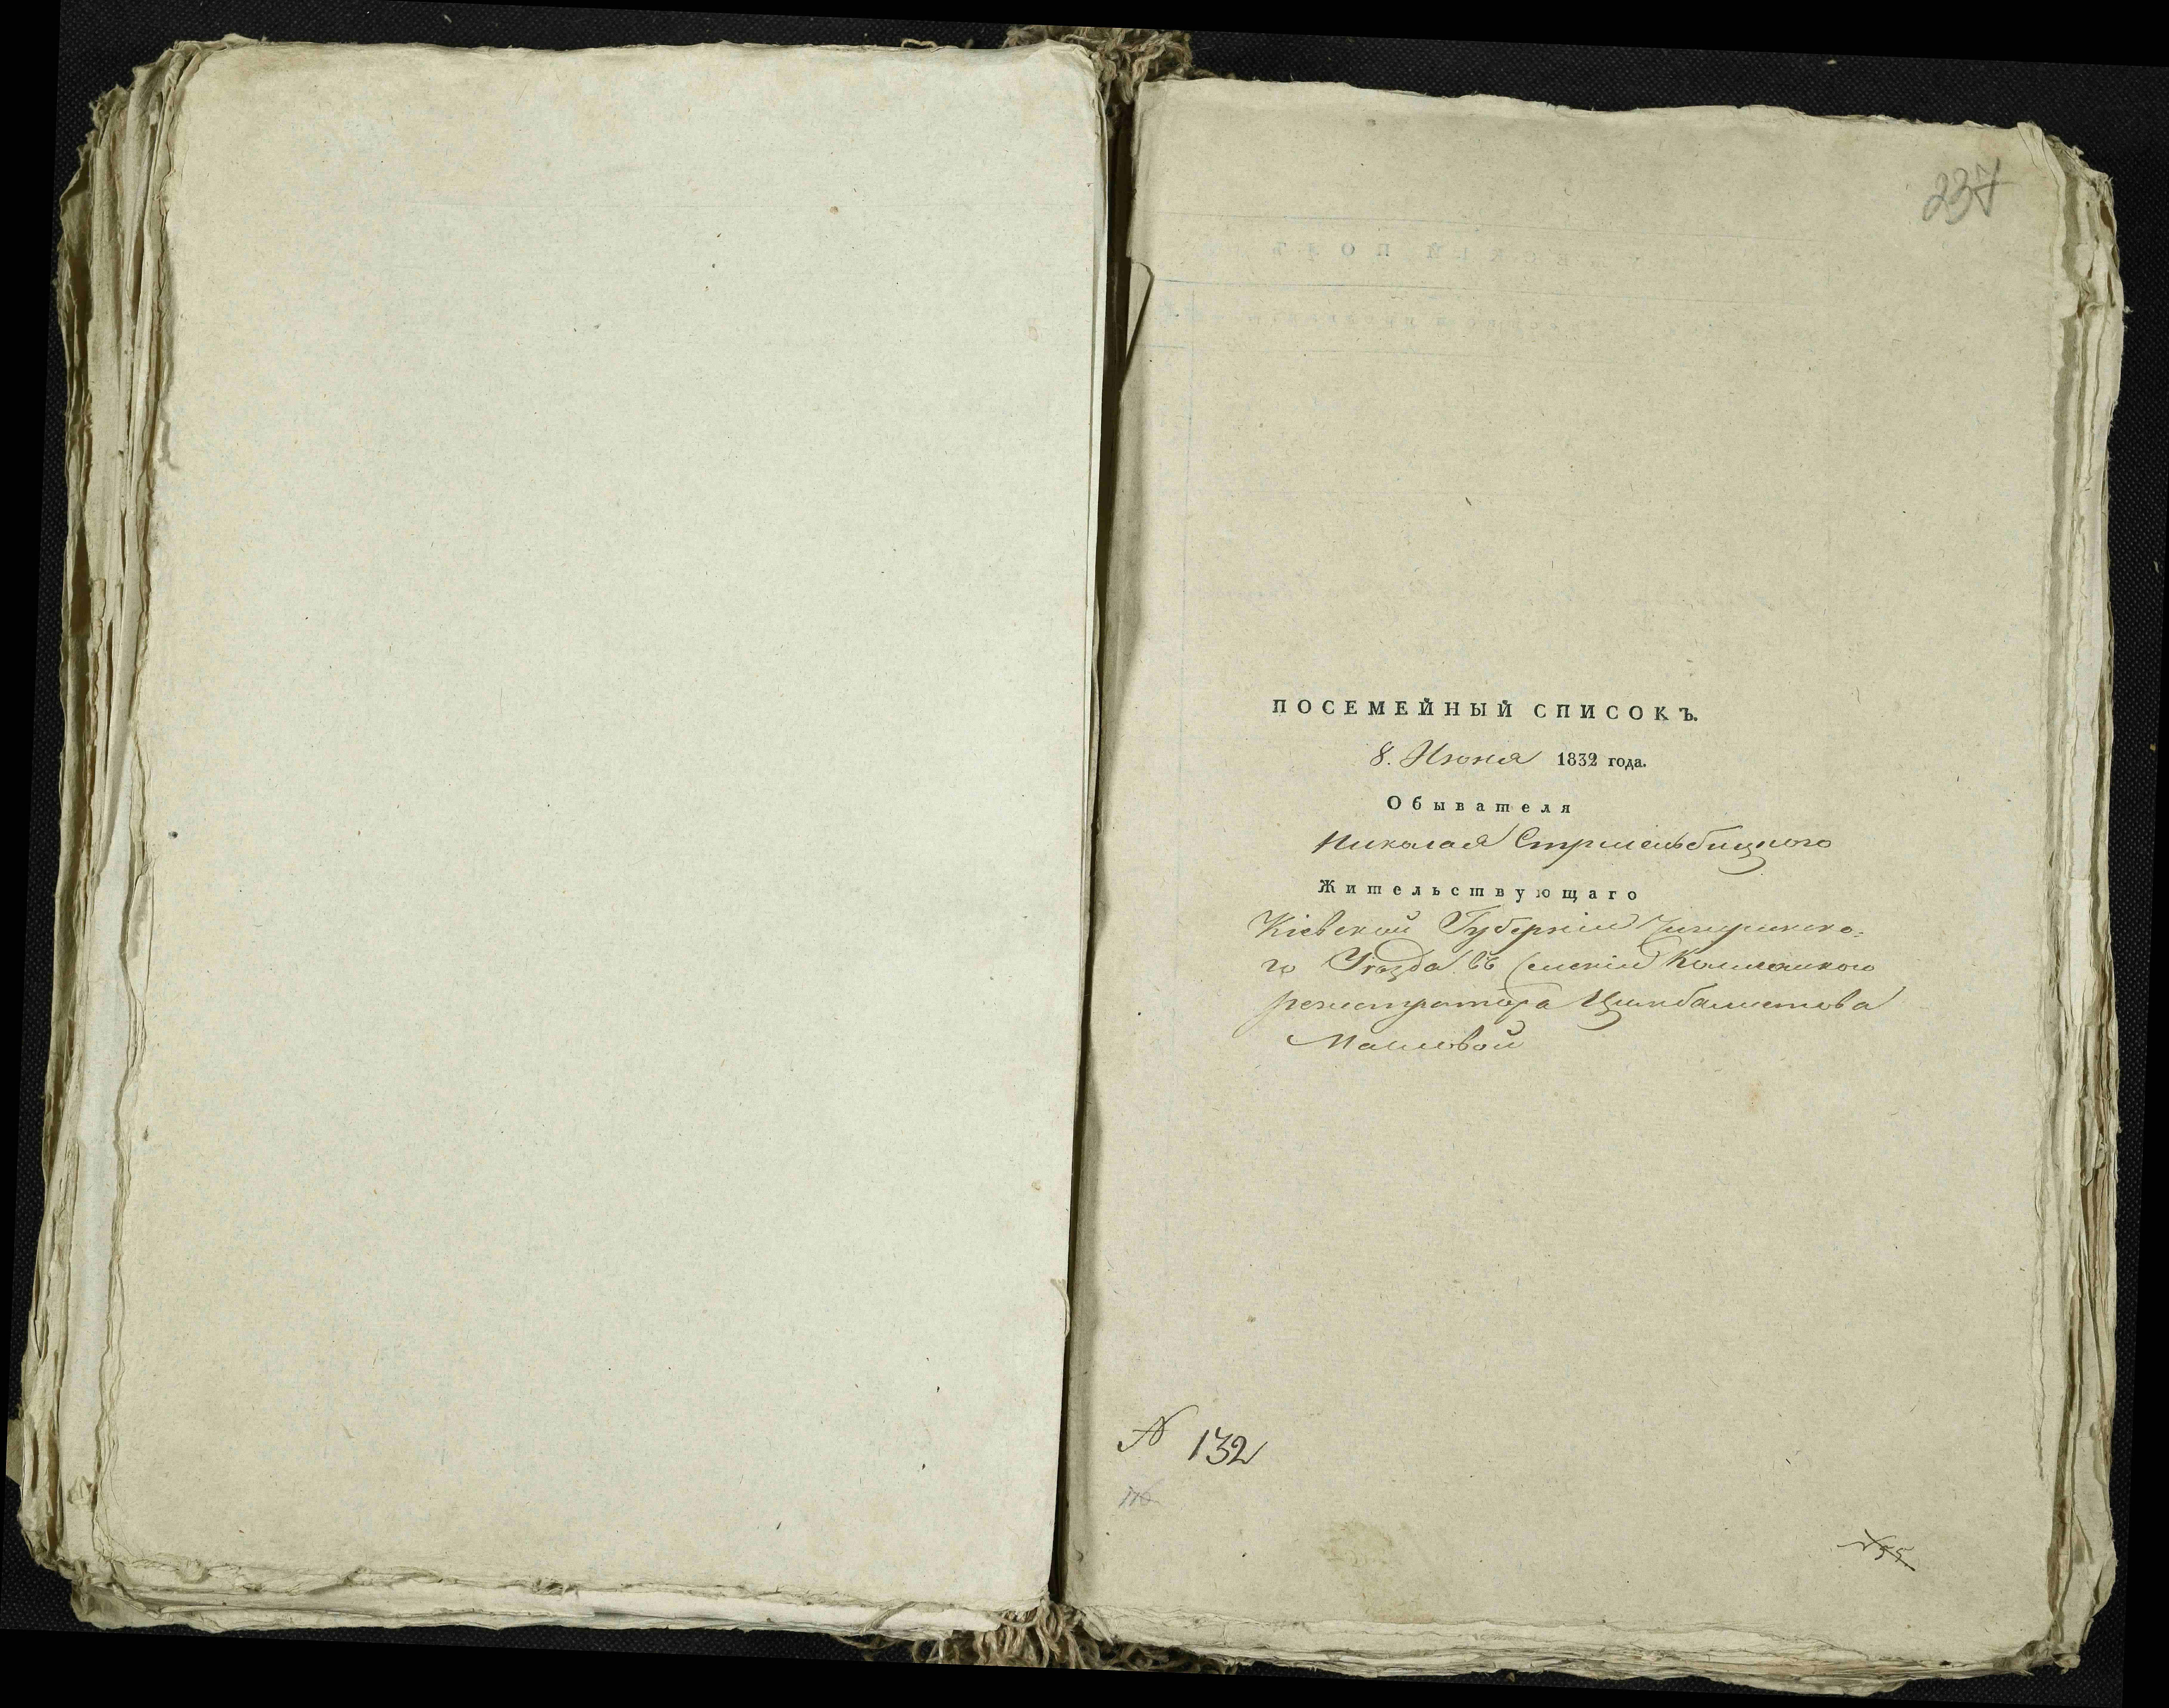 237
ПОСЕМЕЙНЫЙ СПИСОКЪ.
8. Июня 1832 года.
Обывателя
Николая Стрмельбицкого
Жительствующаго
Кіевской Губерніи Чигиринско:
го Уѣзда въ имѣніи Коллежского
регистратора Цимбалистова
Малевой
№ 132
№55.